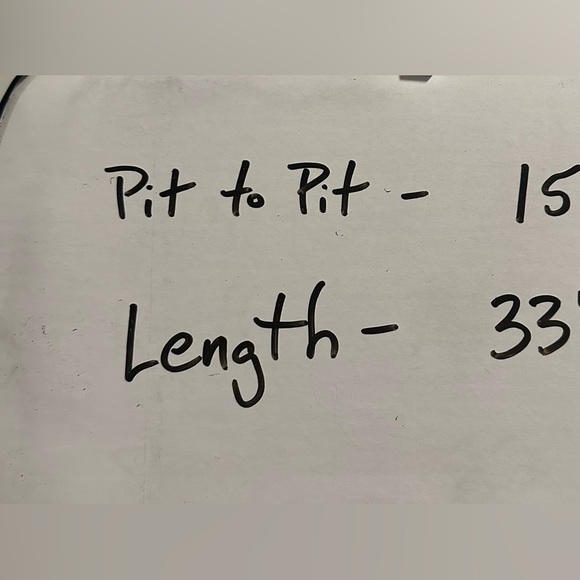 Pit to Pit - 15
Length - 33"